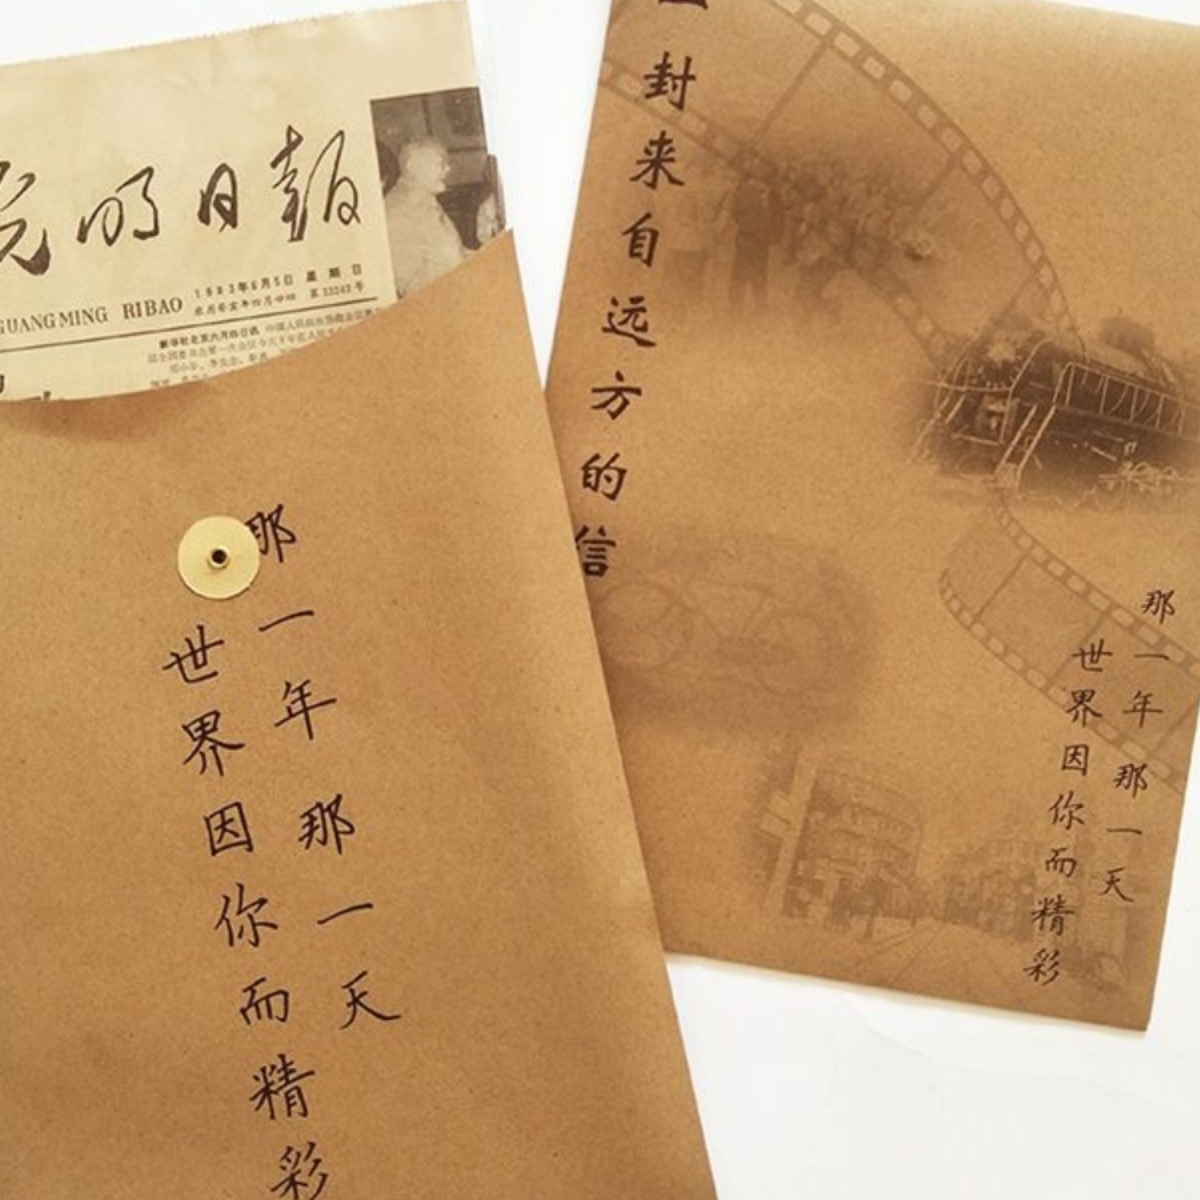 光明日报
GUANGMING RIBAO
1983年6月5日 星期日
农历癸亥年四月廿四 第12243号
那一年那一天
世界因你而精彩
一封来自远方的信
那一年那一天
世界因你而精彩